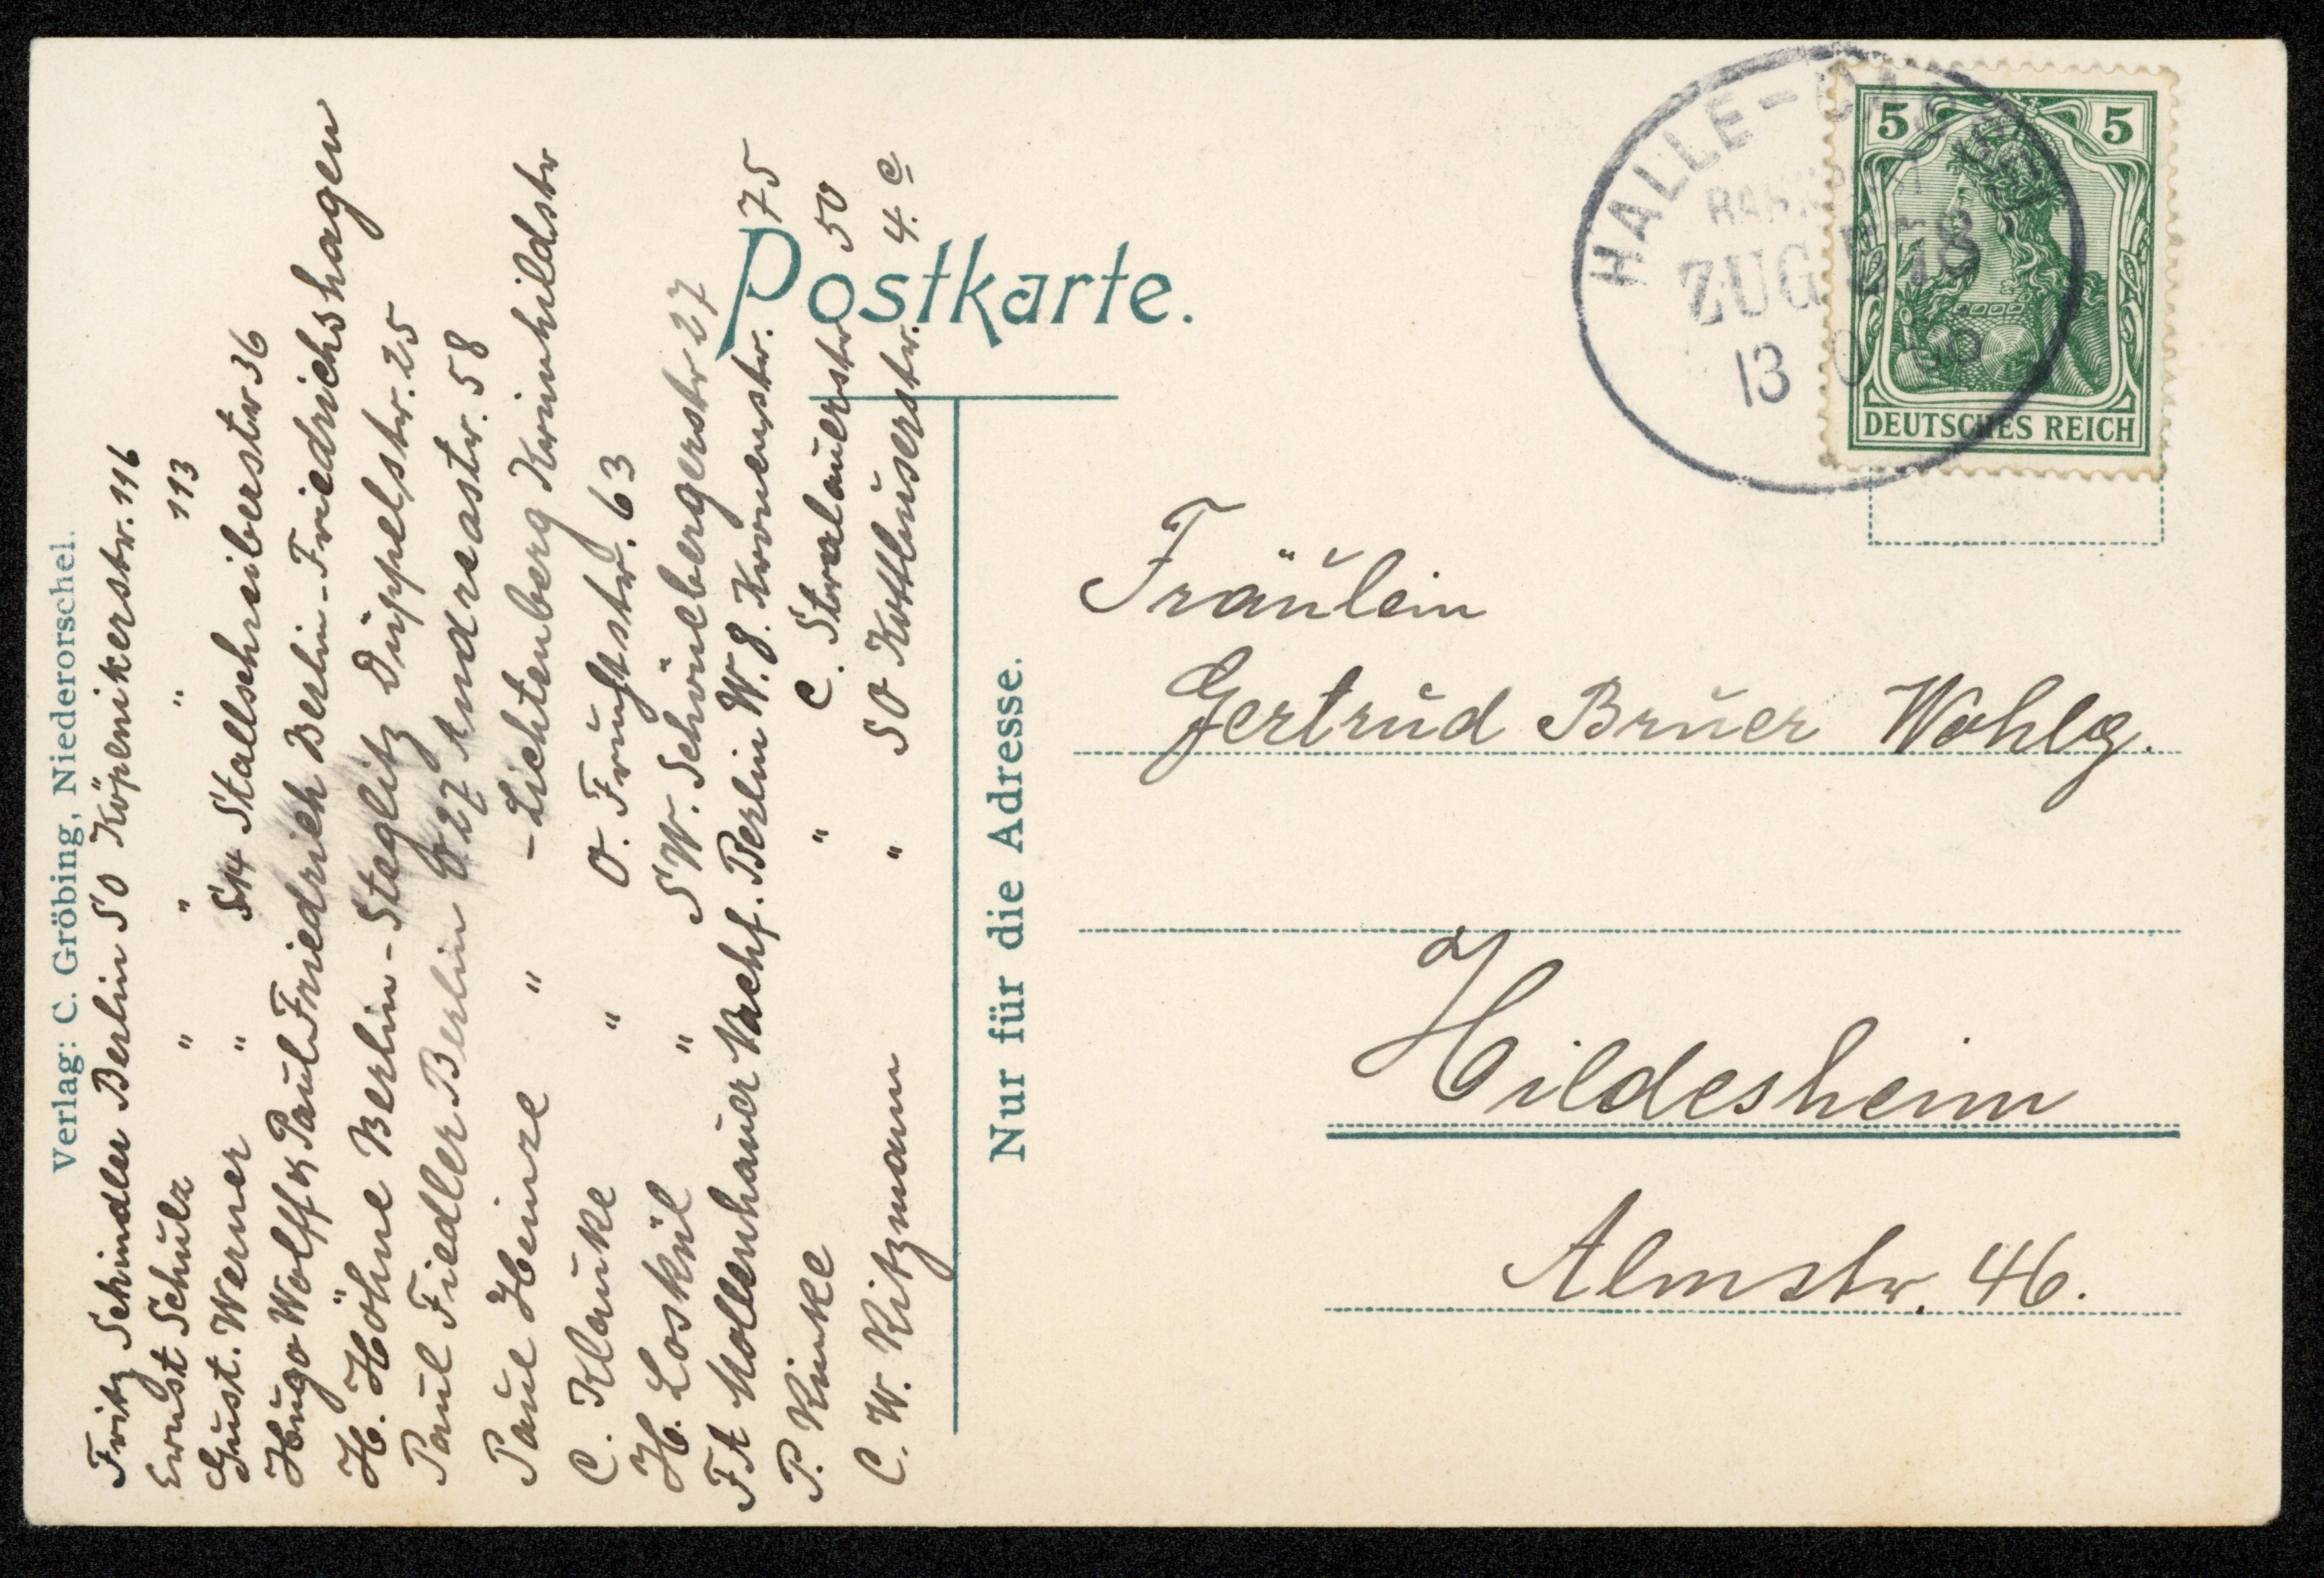 Verlag: C. Gröbing, Niederorschel.
Fritz Schindler Berlin SO Köpenikerstr. 116
Ernst Schulz " " " 113
Gust. Werner " S14 Stallschreiberstr 36
Hugo Wolff & Paul Friedrich Berlin-Friedrichshagen
H. Höhne Berlin-Steglitz Düppelstr. 25
Paul Fiedler Berlin O 27 Andreastr. 58
Paul Heinze " -Lichtenberg Krimhildstr
C. Klauke " O. Fruchtstr. 63
H. Loskül " SW. Schönebergerstr 27
F A Mollenhauer Nachf. Berlin W. 8. Kronenstr. 75
P. Rinke " C. Stralauerstr 50
C. W. Ritzmann " SO Kottbuserstr. 4. c
Postkarte.
Nur für die Adresse.
HALLE-
ZUG
13
5 5
DEUTSCHES REICH
Fräulein
Gertrud Bruer Wohlg.
Hildesheim
Almstr. 46.